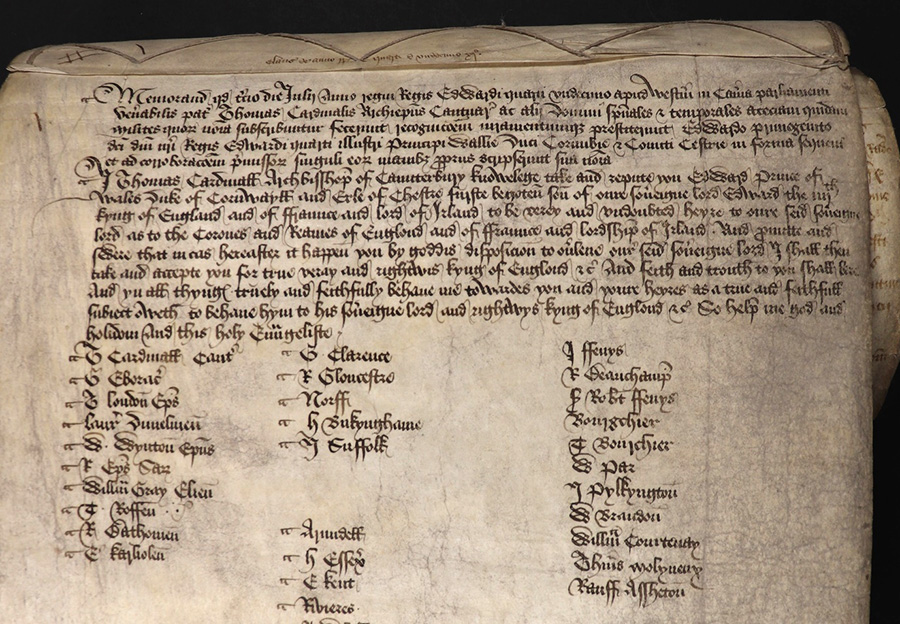 Memorand qd tercio die Julij Anno regni Regis Edwardi quarti undecimo apud Westm in Camera parliamenti
venerabilis pater Thomas Cardinalis Archiepus Cantuar ac alii Domini spirituales & temporales ac eciam quidam
milites quorum nomina subscribuntur fecerunt recognicionem iuramentumque prestiterunt Edwardo primogenito
dci dni nri Regis Edwardi quarti illustri Principi Wallie Duci Cornubie & Comiti Cestrie in forma sequenti
et ad corroboracoem premissorum singuli eorum manibus propriis scripserunt sua noia
I Thomas Cardinall Archbisshop of Caunterbury knowelege take and repute you Edward Prince of
Wales Duke of Cornwayll and Erle of Chestre furste begoten son of oure soueigne lord Edward the iiijth
kyng of England and of ffraunce and lord of Irland to be verey and undoubted heyre to oure seid soueigne
lord as to the Corones and Reames of England and of ffraunce and lordship of Irland And promitte and
swere that in cas hereafter it happen you by goddis disposicion to outleue our seid soueigne lord I shall then
take and accepte you for true veray and rightwis kyng of England &c And feith and trouth to you shall bere
And yn all thyngs truely and feithfully behaue me towardes you and youre heyres as a true and faithfull
subiect oweth to behaue hym to his soueigne lord and rightwys kyng of England &c So help me god and
holidom And this holy Euungeliste
T Cardinall Cant
G Eborac
T london Eps
laur Dunelmen
W Wynton Epus
R Eps Sar
Willm Gray Elien
T Roffen
R Bathonien
E karliolen
G Clarence
R Gloucestre
Norff
H Bukyngham
J Suffolk
Arundell
H Essex
E kent
Rivieres
J ffenys
R Beauchamp
Robt ffenys
Bourgchier
T Bourchier
W Par
J Pylkyngton
W Brandon
Willm Courtenay
Thms molyneux
Rauff Assheton